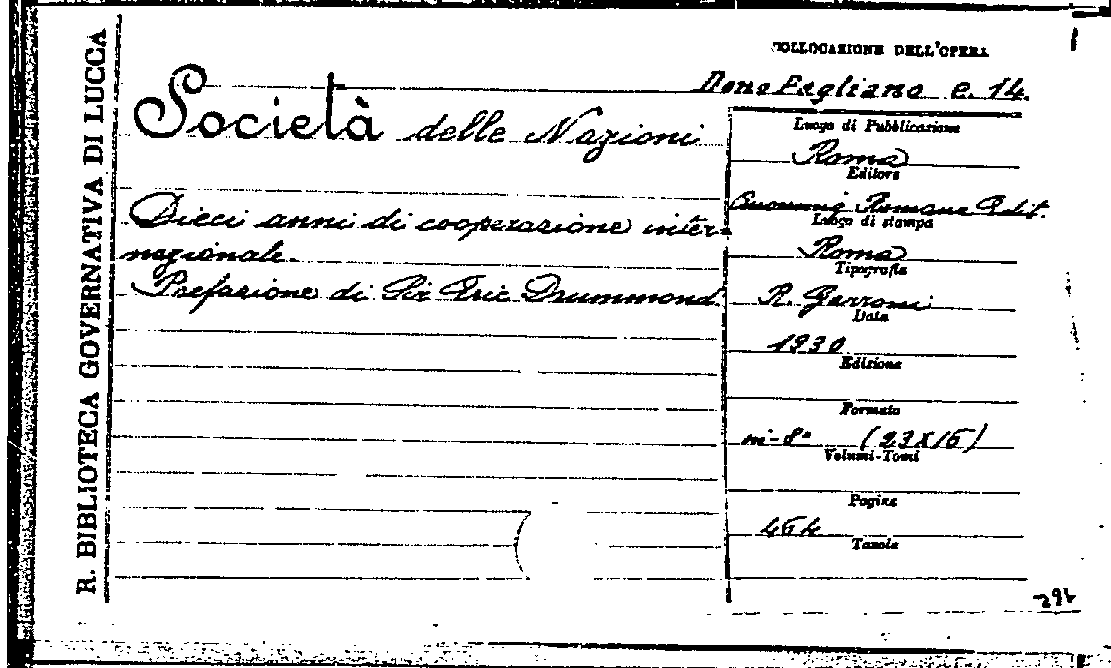 R. BIBLIOTECA GOVERNATIVA DI LUCCA
COLLOCAZIONE DELL'OPERA
Dono Pagliano C. 14.
Società delle Nazioni
Dieci anni di cooperazione inter-
nazionale.
Prefazione di Sir Eric Drummond.
Luogo di Pubblicazione
Roma
Editore
Romana Edit.
Luogo di stampa
Roma
Tipografia
R. Garroni
Data
1930
Edizione
Formato
in-8° (23X15)
Volumi-Tomi
Pagine
454
Tavole